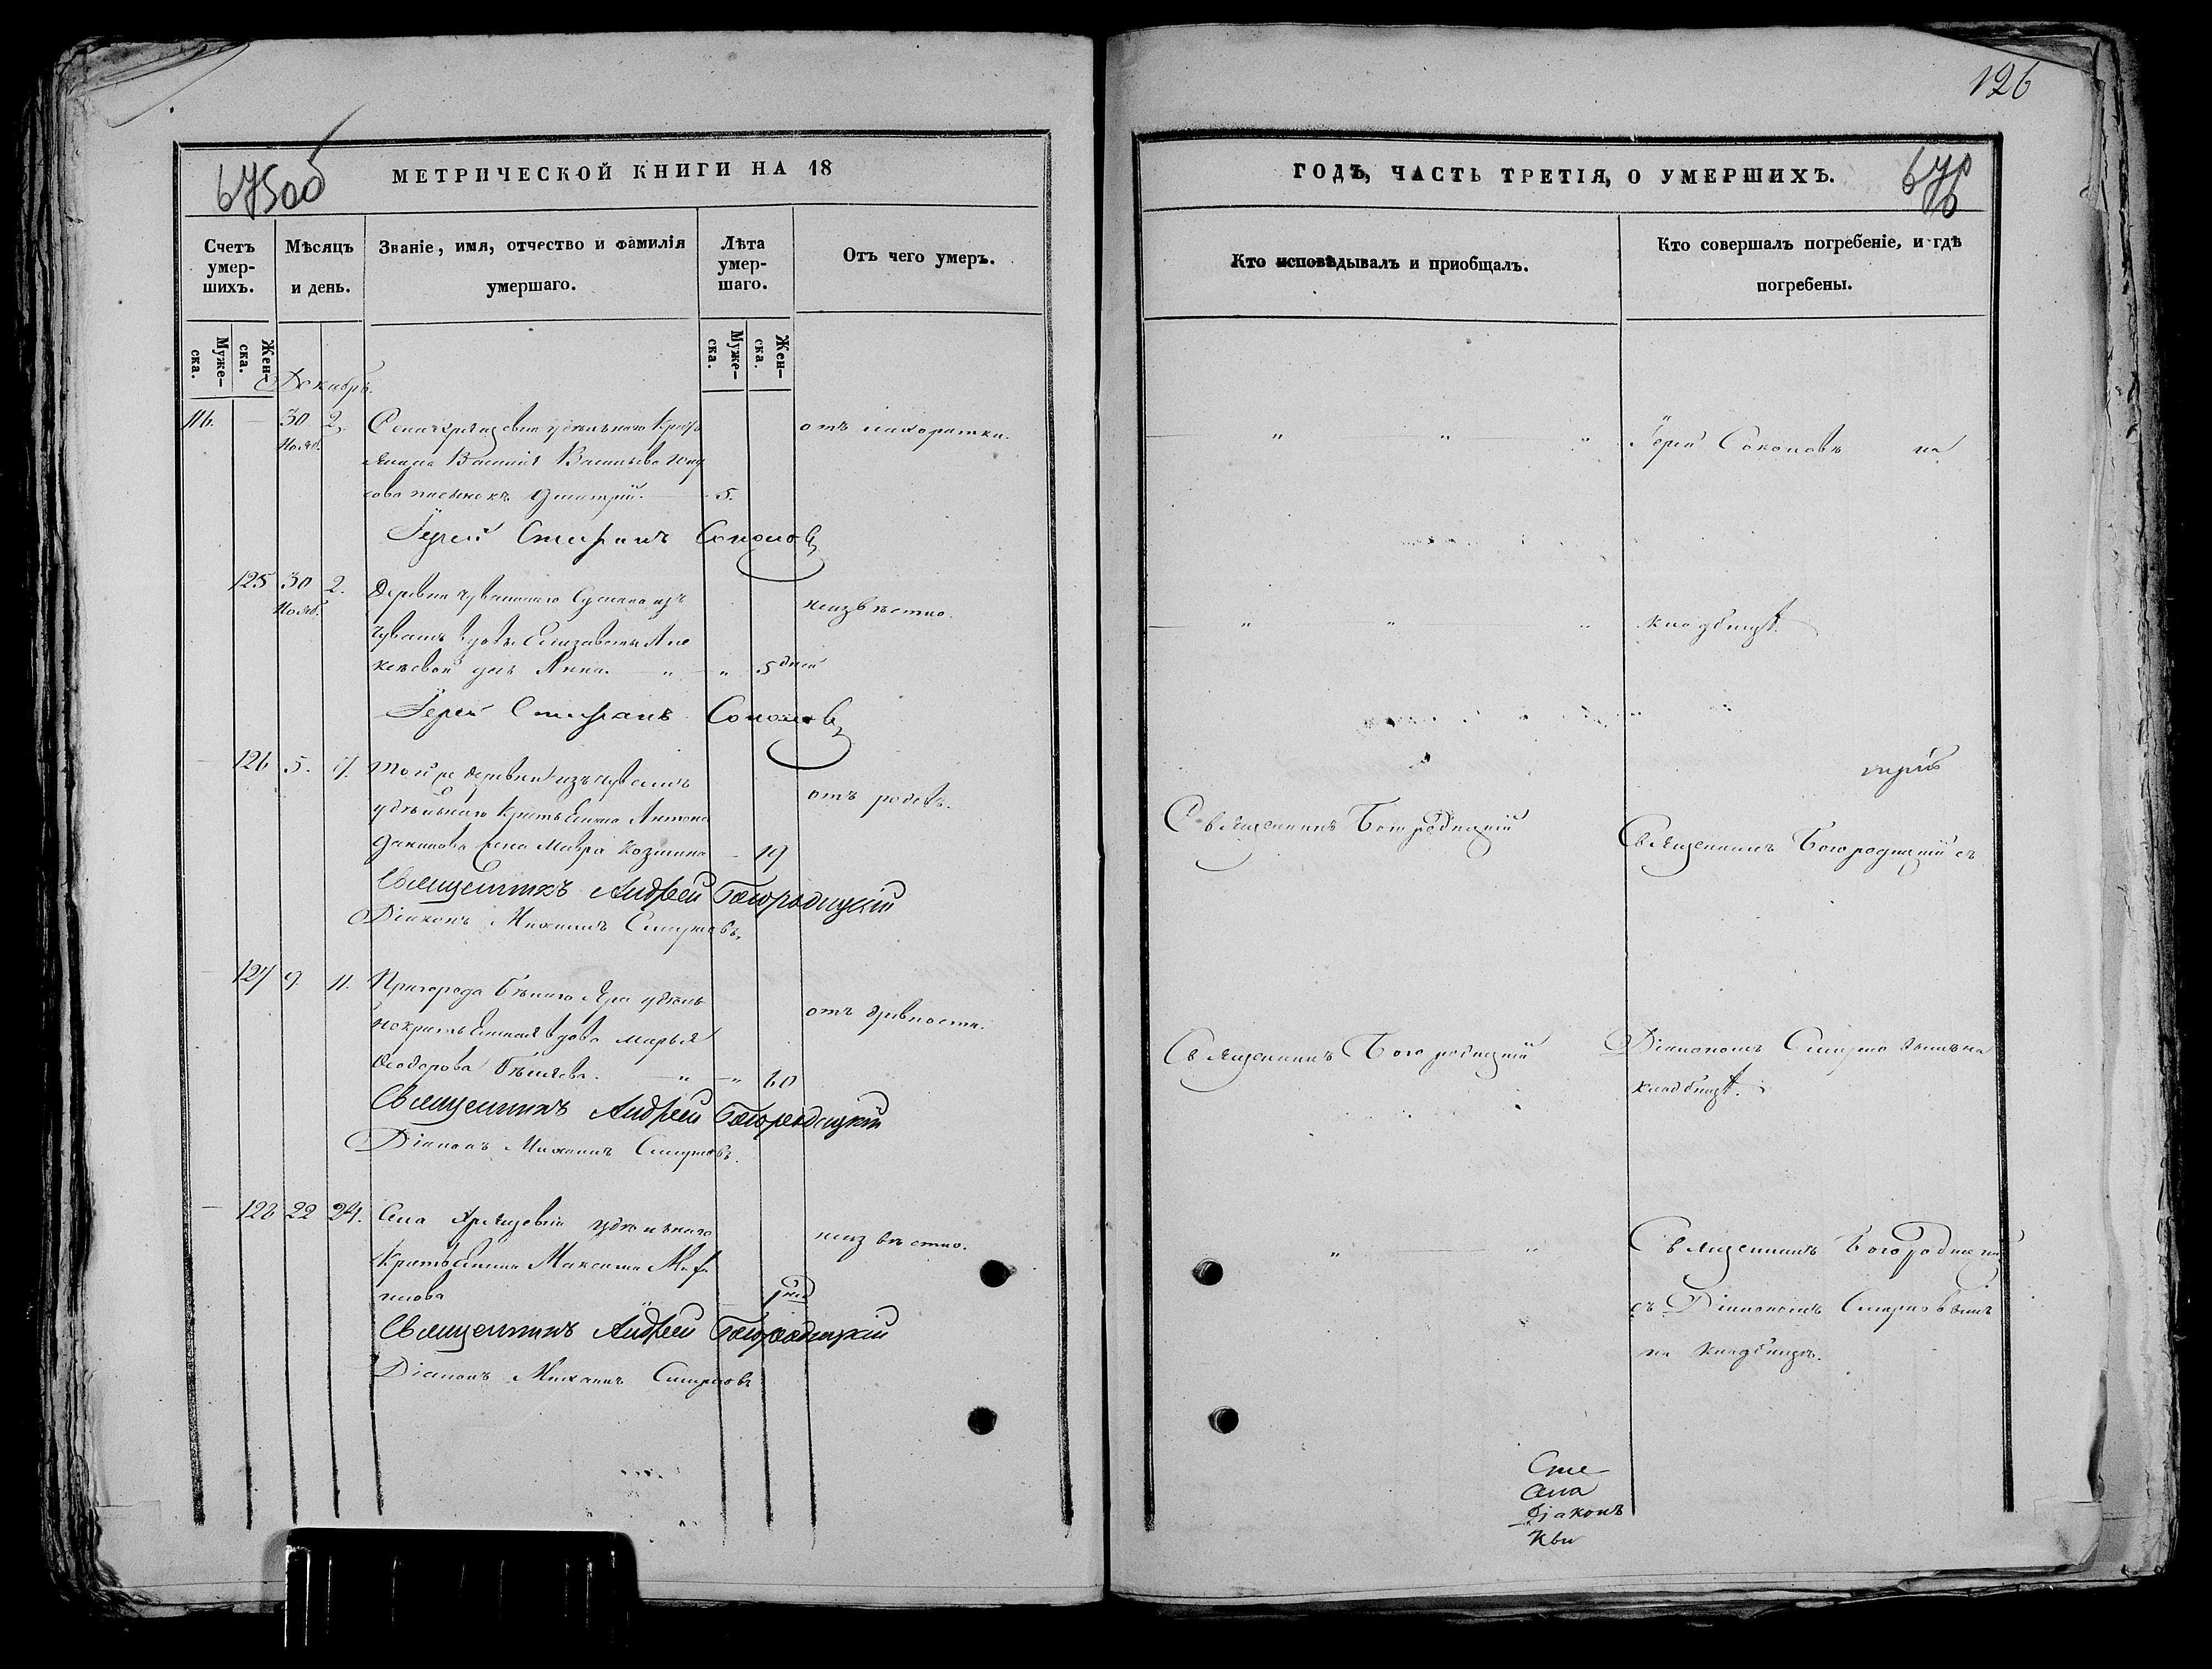 126
675об
МЕТРИЧЕСКОЙ КНИГИ НА 18
Счетъ умер-шихъ.
Мѣсяцъ и день.
Званіе, имя, отчество и фамилія умершаго.
Лѣта умер-шаго.
Отъ чего умеръ.
Муже-ска.
Жен-ска.
Муже-ска.
Жен-ска.
Декабрь.
116. 30 2.
Нояб.
Села удѣльнаго Кресть
янина Василія Васильева
пасынокъ Дмитрій. 5.
отъ лихорадки.
Іерей Стефанъ Соколовъ
125 30 2.
Нояб.
Деревни
чувашъ вдовы Елизаветы Але
ксѣевой дочь Анна. " " 5 дней
неизвѣстно.
Іерей Стефанъ Соколовъ
126 5. 7. Той же деревни изъ чувашъ
удѣльнаго Крестьянина Антона
Данилова жена Мавра Козмина 19
отъ родовъ.
Священникъ Андрей Богородицкій
Діаконъ Михаилъ Смирновъ.
127 9 11. Пригорода Бѣлаго Яра удѣль
но крестьянская вдова Марья
Ѳеодорова Бѣляева. " " 60
отъ древности.
Священникъ Андрей Богородицкій
Діаконъ Михаилъ Смирновъ.
128 22 24. Села удѣльнаго
Крестьянина Максима
неизвѣстно.
Священникъ Андрей Богородицкій
Діаконъ Михаилъ Смирновъ
ГОДЪ, ЧАСТЬ ТРЕТІЯ, О УМЕРШИХЪ.
676
Кто исповѣдывалъ и приобщалъ.
Кто совершалъ погребеніе, и гдѣ погребены.
" " " Іерей Соколовъ на
" " " кладбищѣ.
Священникъ Богородицкій
Священникъ Богородицкій съ
Священникъ Богородицкій
Діакономъ Смирновымъ на
кладбищѣ.
" " Священникъ Богородицкій
съ Діакономъ Смирновымъ
на кладбищѣ.
Сте
Села
Діаконъ